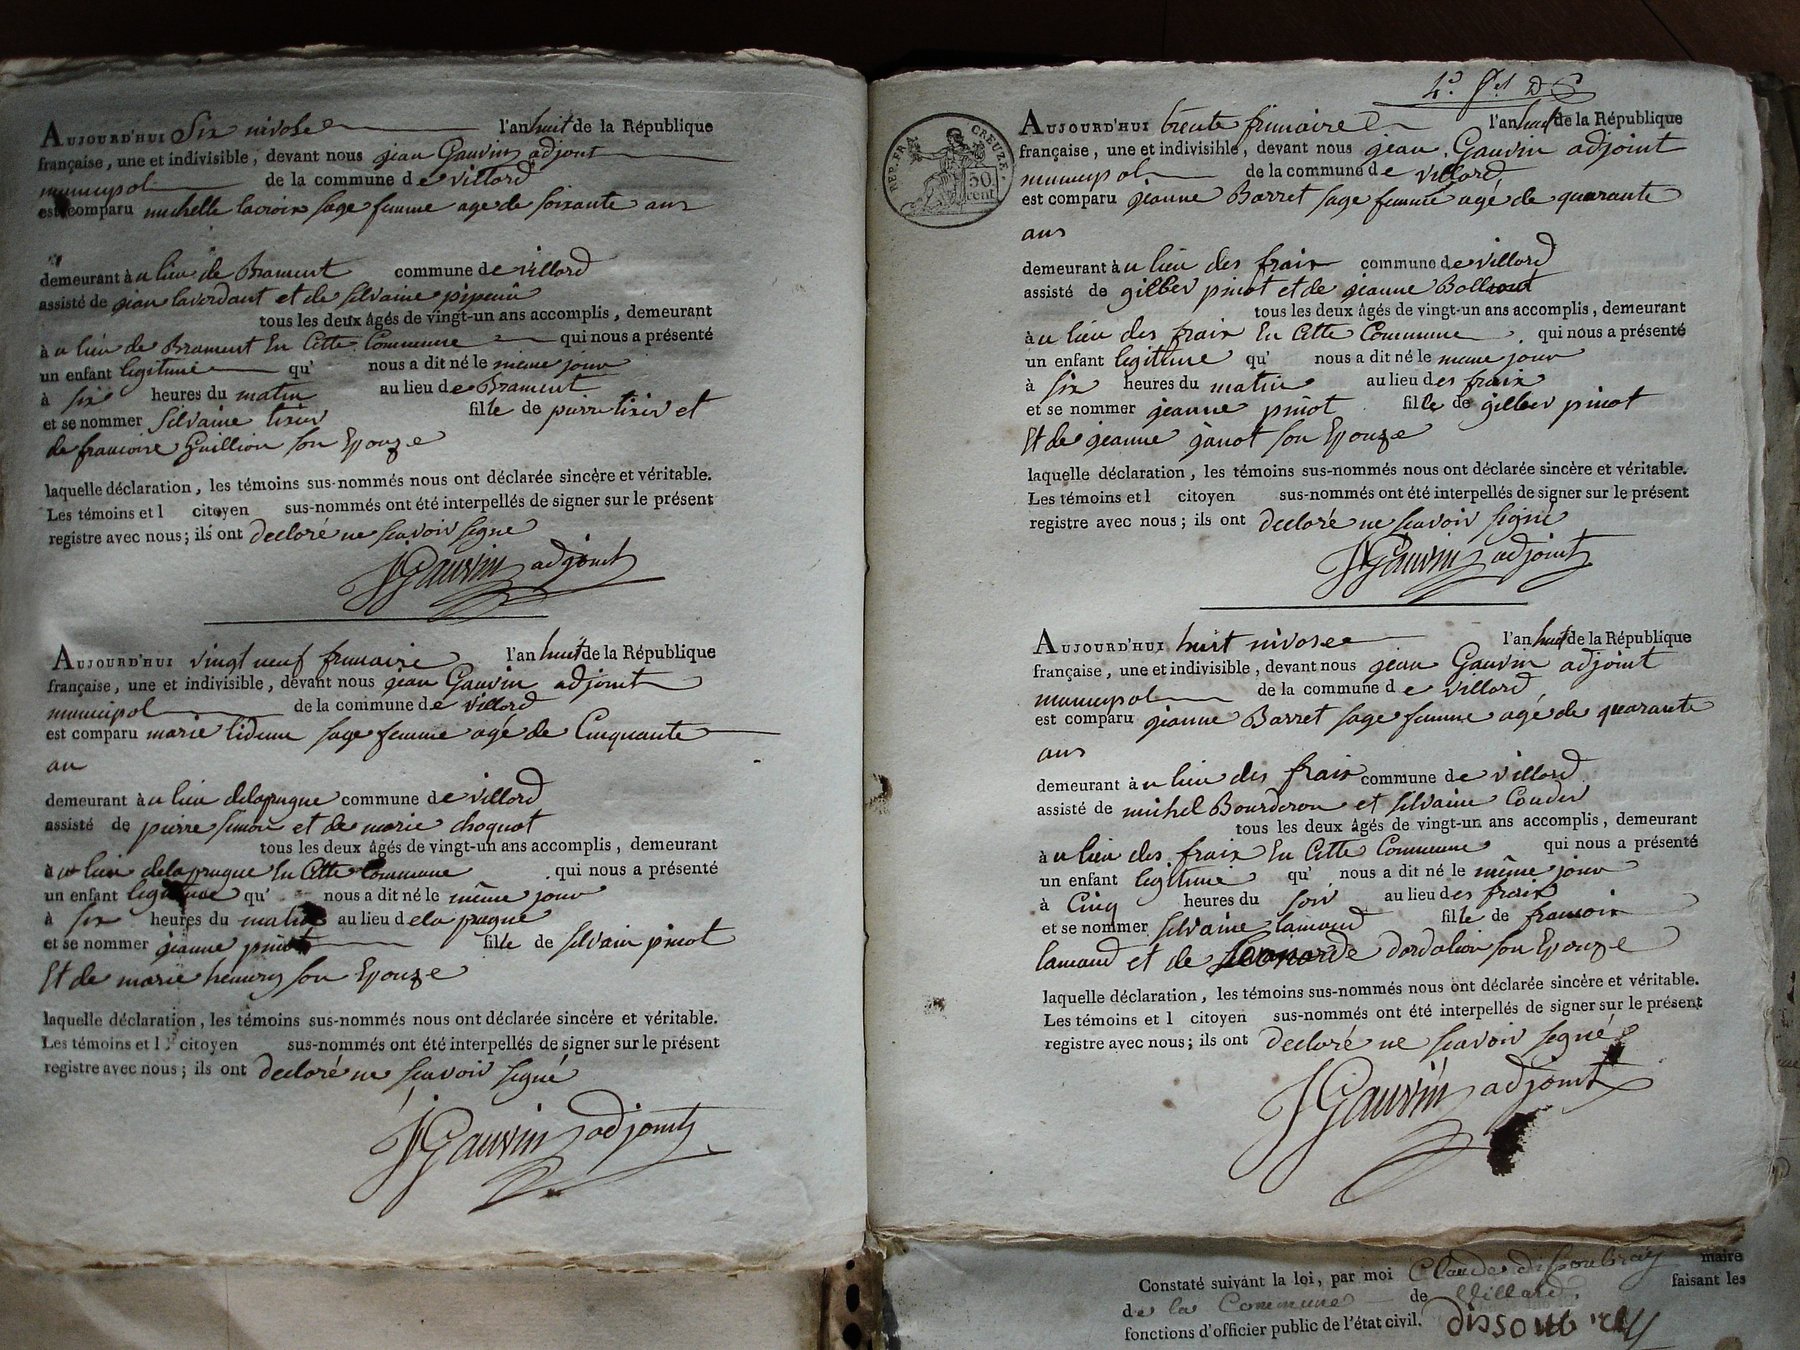 AUJOURD'HUI Six nivose l'an huit de la République
française, une et indivisible, devant nous jean Gauvin adjoint
municipal de la commune de villard
est comparu michelle lacroix sage femme age de soixante ans
demeurant au lieu de Brament commune de villard
assisté de jean lavordant et de silvaine pipeau
tous les deux âgés de vingt-un ans accomplis, demeurant
à u lieu de Brament En Cette Commune qui nous a présenté
un enfant legitime qu' nous a dit né le meme jour
à six heures du matin au lieu de Brament
et se nommer Silvaine tixier fille de pierre tixier et
de francoise Guillion son Epouze
laquelle déclaration, les témoins sus-nommés nous ont déclarée sincère et véritable.
Les témoins et l citoyen sus-nommés ont été interpellés de signer sur le présent
registre avec nous; ils ont decloré ne scavoir signe
JGauvin adjoint
AUJOURD'HUI vingt neuf frimaire l'an huit de la République
française, une et indivisible, devant nous jean Gauvin adjoint
municipal de la commune de villard
est comparu marie sage femme agé de Cinquante
an
demeurant à u lieu delaprugne commune de villard
assisté de pierre simon et de marie choquot
tous les deux âgés de vingt-un ans accomplis, demeurant
à u lieu delaprugne En Cette Commune qui nous a présenté
un enfant legitime qu' nous a dit né le même jour
à six heures du matin au lieu dela prugne
et se nommer jeanne pinot fille de silvain pinot
Et de marie hemery son Epouze
laquelle déclaration, les témoins sus-nommés nous ont déclarée sincère et véritable.
Les témoins et l citoyen sus-nommés ont été interpellés de signer sur le présent
registre avec nous; ils ont decloré ne scavoir signé
JGauvin adjoint
REP.FR. CREUZE
50 cent
AUJOURD'HUI trente frimaire l'an huit de la République
française, une et indivisible, devant nous jean Gauvin adjoint
municipal de la commune de villard
est comparu jeanne Barret sage femme agé de quarante
ans
demeurant à u lieu des fraix commune de villard
assisté de gilber pinot et de jeanne
tous les deux âgés de vingt-un ans accomplis, demeurant
à u lieu des fraix En Cette Commune qui nous a présenté
un enfant legitime qu' nous a dit né le meme jour
à six heures du matin au lieu des fraix
et se nommer jeanne pinot fille de gilber pinot
Et de jeanne janot son Epouze
laquelle déclaration, les témoins sus-nommés nous ont déclarée sincère et véritable.
Les témoins et l citoyen sus-nommés ont été interpellés de signer sur le présent
registre avec nous; ils ont decloré ne scavoir signé
JGauvin adjoint
AUJOURD'HUI huit nivose l'an huit de la République
française, une et indivisible, devant nous jean Gauvin adjoint
municipal de la commune de villard
est comparu jeanne Barret sage femme agé de quarante
ans
demeurant à u lieu des fraix commune de villard
assisté de michel Bourderon et silvaine Couder
tous les deux âgés de vingt-un ans accomplis, demeurant
à u lieu des fraix En Cette Commune qui nous a présenté
un enfant legitime qu' nous a dit né le même jour
à Cinq heures du soir au lieu des fraix
et se nommer silvaine lamaud fille de francoix
lamaud et de Leonarde dardalion son Epouze
laquelle déclaration, les témoins sus-nommés nous ont déclarée sincère et véritable.
Les témoins et l citoyen sus-nommés ont été interpellés de signer sur le présent
registre avec nous; ils ont decloré ne scavoir signé
JGauvin adjoint
Constaté suivant la loi, par moi Claude maire
de la Commune de Villard faisant les
fonctions d'officier public de l'état civil.